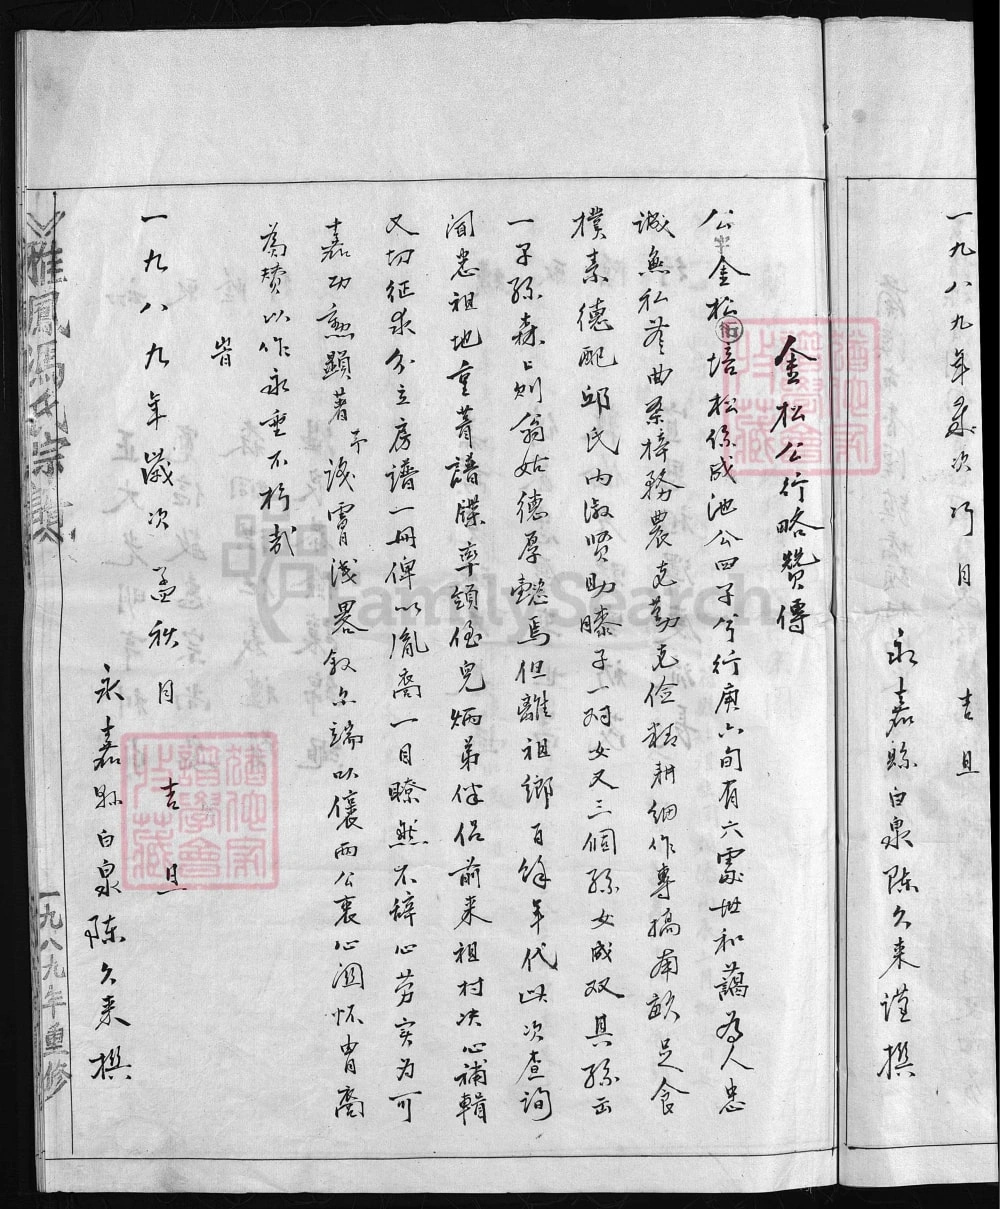 一九八九年歲次巧月 吉旦
永嘉縣白泉陳久来謹撰
金松公行略贊傳
公金松衔培松係成池公四子兮行庚六旬有六處世和藹為人忠
誠無私耆曲桑梓務農克勤克俭精耕细作專搞南畝足食
樸素德配邱氏内淑贤助膝子一对女又三個孫女成双具孫缶
一子孫森々則翁姑德厚懿焉但離祖鄉百餘年代此次查詢
聞悉祖地重菁譜牒率領侄兒炳弟伴侣前来祖村决心補輯
又切征求分立房譜一冊俾以胤裔一目瞭然不辞心劳实为可
嘉功勲顯著予谈霄浅畧叙尔端以儴两公衷心涸怀胄裔
为赞以作永垂不朽哉
旹
一九八九年歲次孟秋月 吉旦
永嘉县白泉陳久来撰
雅鳳馮氏宗譜
一九八九年重修
FamilySearch